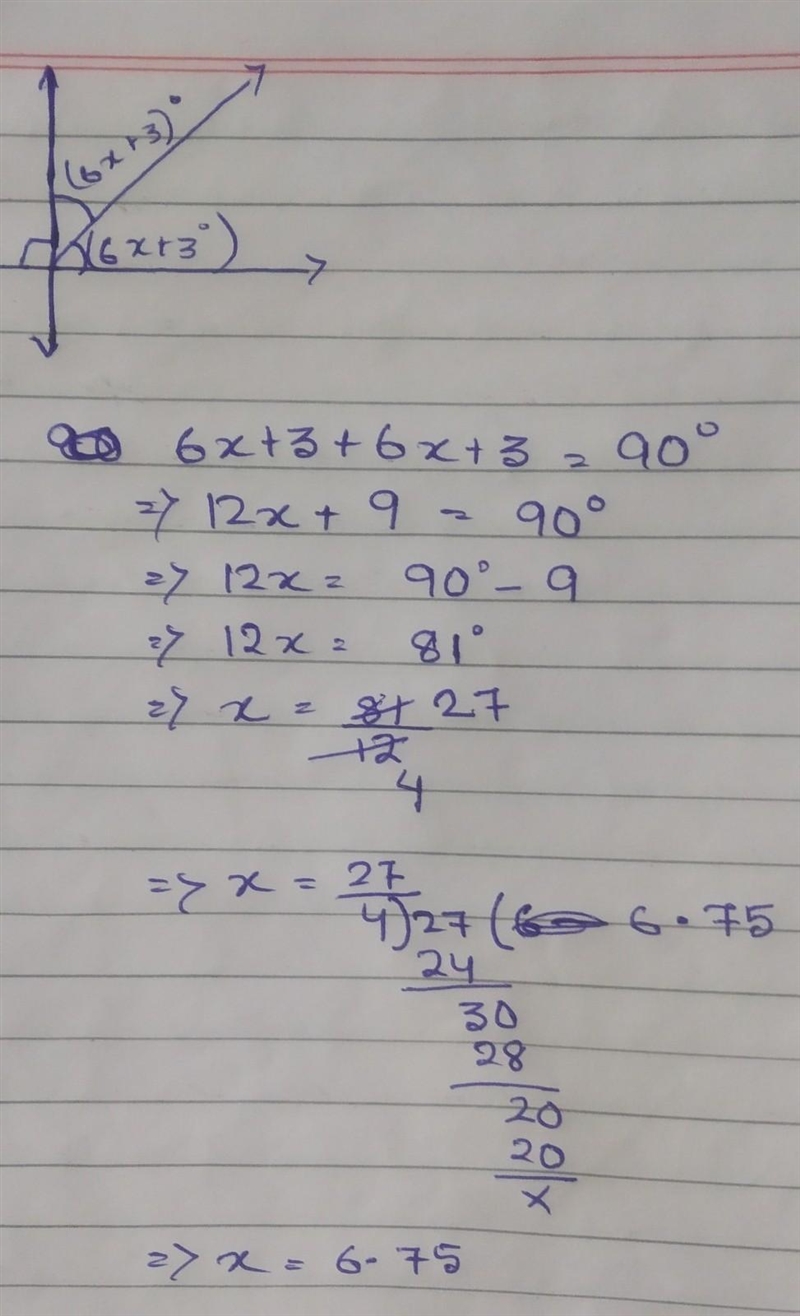 (6x+3)°
(6x+3°)
6x+3+6x+3 = 90°
=> 12x + 9 = 90°
=> 12x = 90° - 9
=> 12x = 81°
=> x = 81 27
12
4
=> x = 27
4)27( 6.75
24
30
28
20
20
x
=> x = 6.75